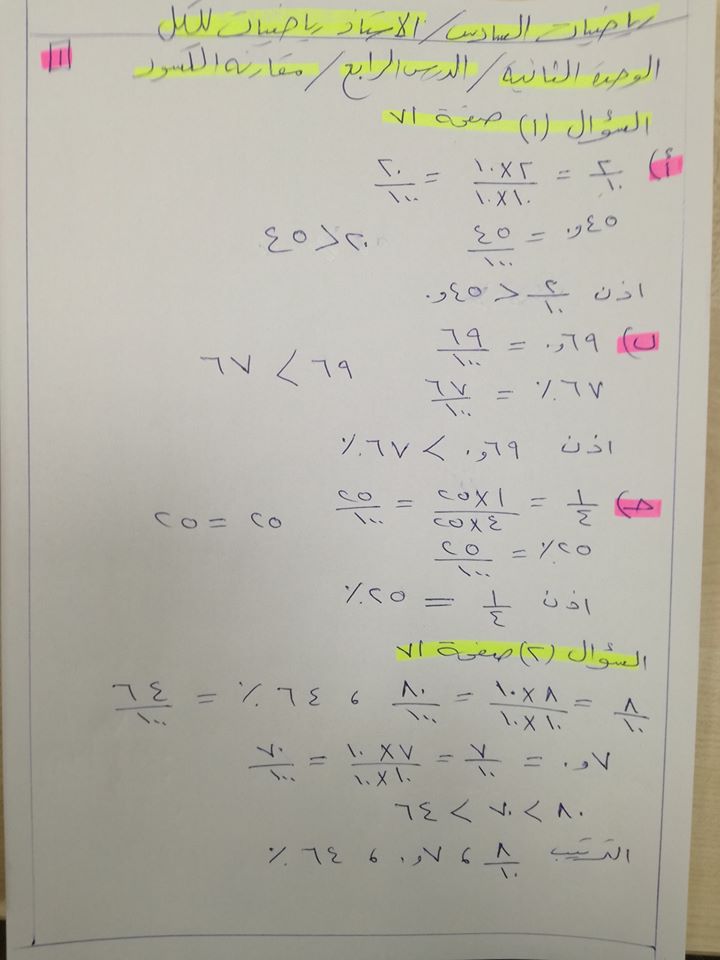 رياضيات السادس / الاستاذ رياضيات للكل
١
الوحدة الثانية / الدرس الرابع / مقارنة الكسور
السؤال (١) صفحة ٧١
أ) ٢/١٠ = ٢×١٠/١٠×١٠ = ٢٠/١٠٠
٠,٤٥ = ٤٥/١٠٠ ٢٠ < ٤٥
اذن ٢/١٠ < ٠,٤٥
ب) ٠,٦٩ = ٦٩/١٠٠
٦٩ > ٦٧
٦٧٪ = ٦٧/١٠٠
اذن ٠,٦٩ > ٦٧٪
ج) ١/٤ = ١×٢٥/٤×٢٥ = ٢٥/١٠٠ ٢٥ = ٢٥
٢٥٪ = ٢٥/١٠٠
اذن ١/٤ = ٢٥٪
السؤال (٢) صفحة ٧١
٨/١٠ = ٨×١٠/١٠×١٠ = ٨٠/١٠٠ ، ٤٦٪ = ٤٦/١٠٠
٠,٧ = ٧/١٠ = ٧×١٠/١٠×١٠ = ٧٠/١٠٠
٨٠ > ٧٠ > ٤٦
الترتيب ٨/١٠ و ٠,٧ ، ٤٦٪